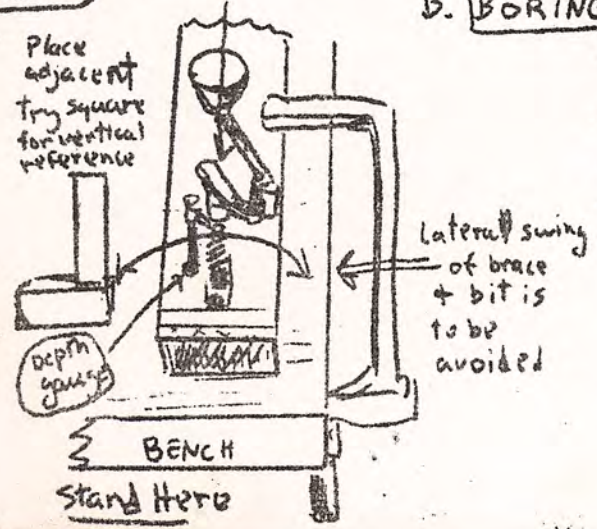 B. BORING
Place
adjacent
try square
for vertical
reference
Lateral swing
of brace
& bit is
to be
avoided
Depth
gauge
BENCH
Stand Here